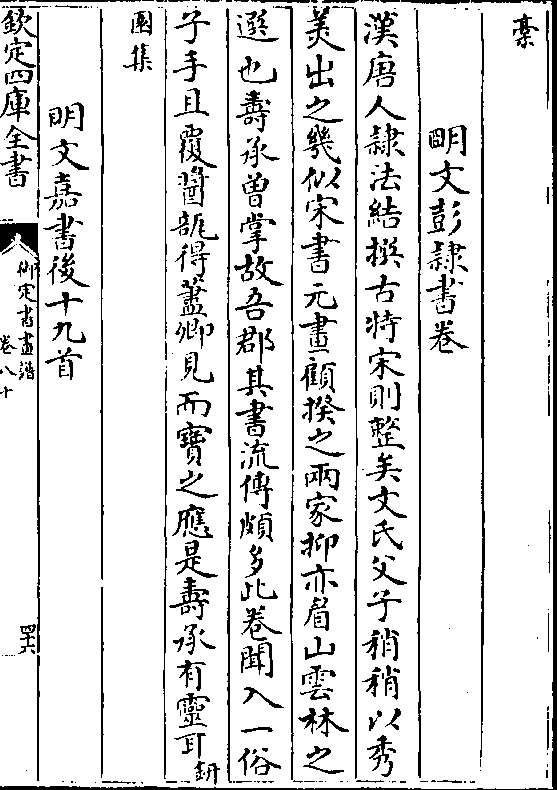 稾
明文彭隸書卷
漢唐人隸法結撰古特宋則整矣文氏父子稍稍以秀
美出之幾似宋書元畫顧揆之兩家抑亦眉山雲林之
選也壽承曽掌故吾郡其書流傳頗多此卷聞入一俗
子手且覆醬瓿得藎卿見而寶之應是壽承有靈耳姸
園集
明文嘉書後十九首
欽定四庫全書
御定書畫譜
卷八十
四六